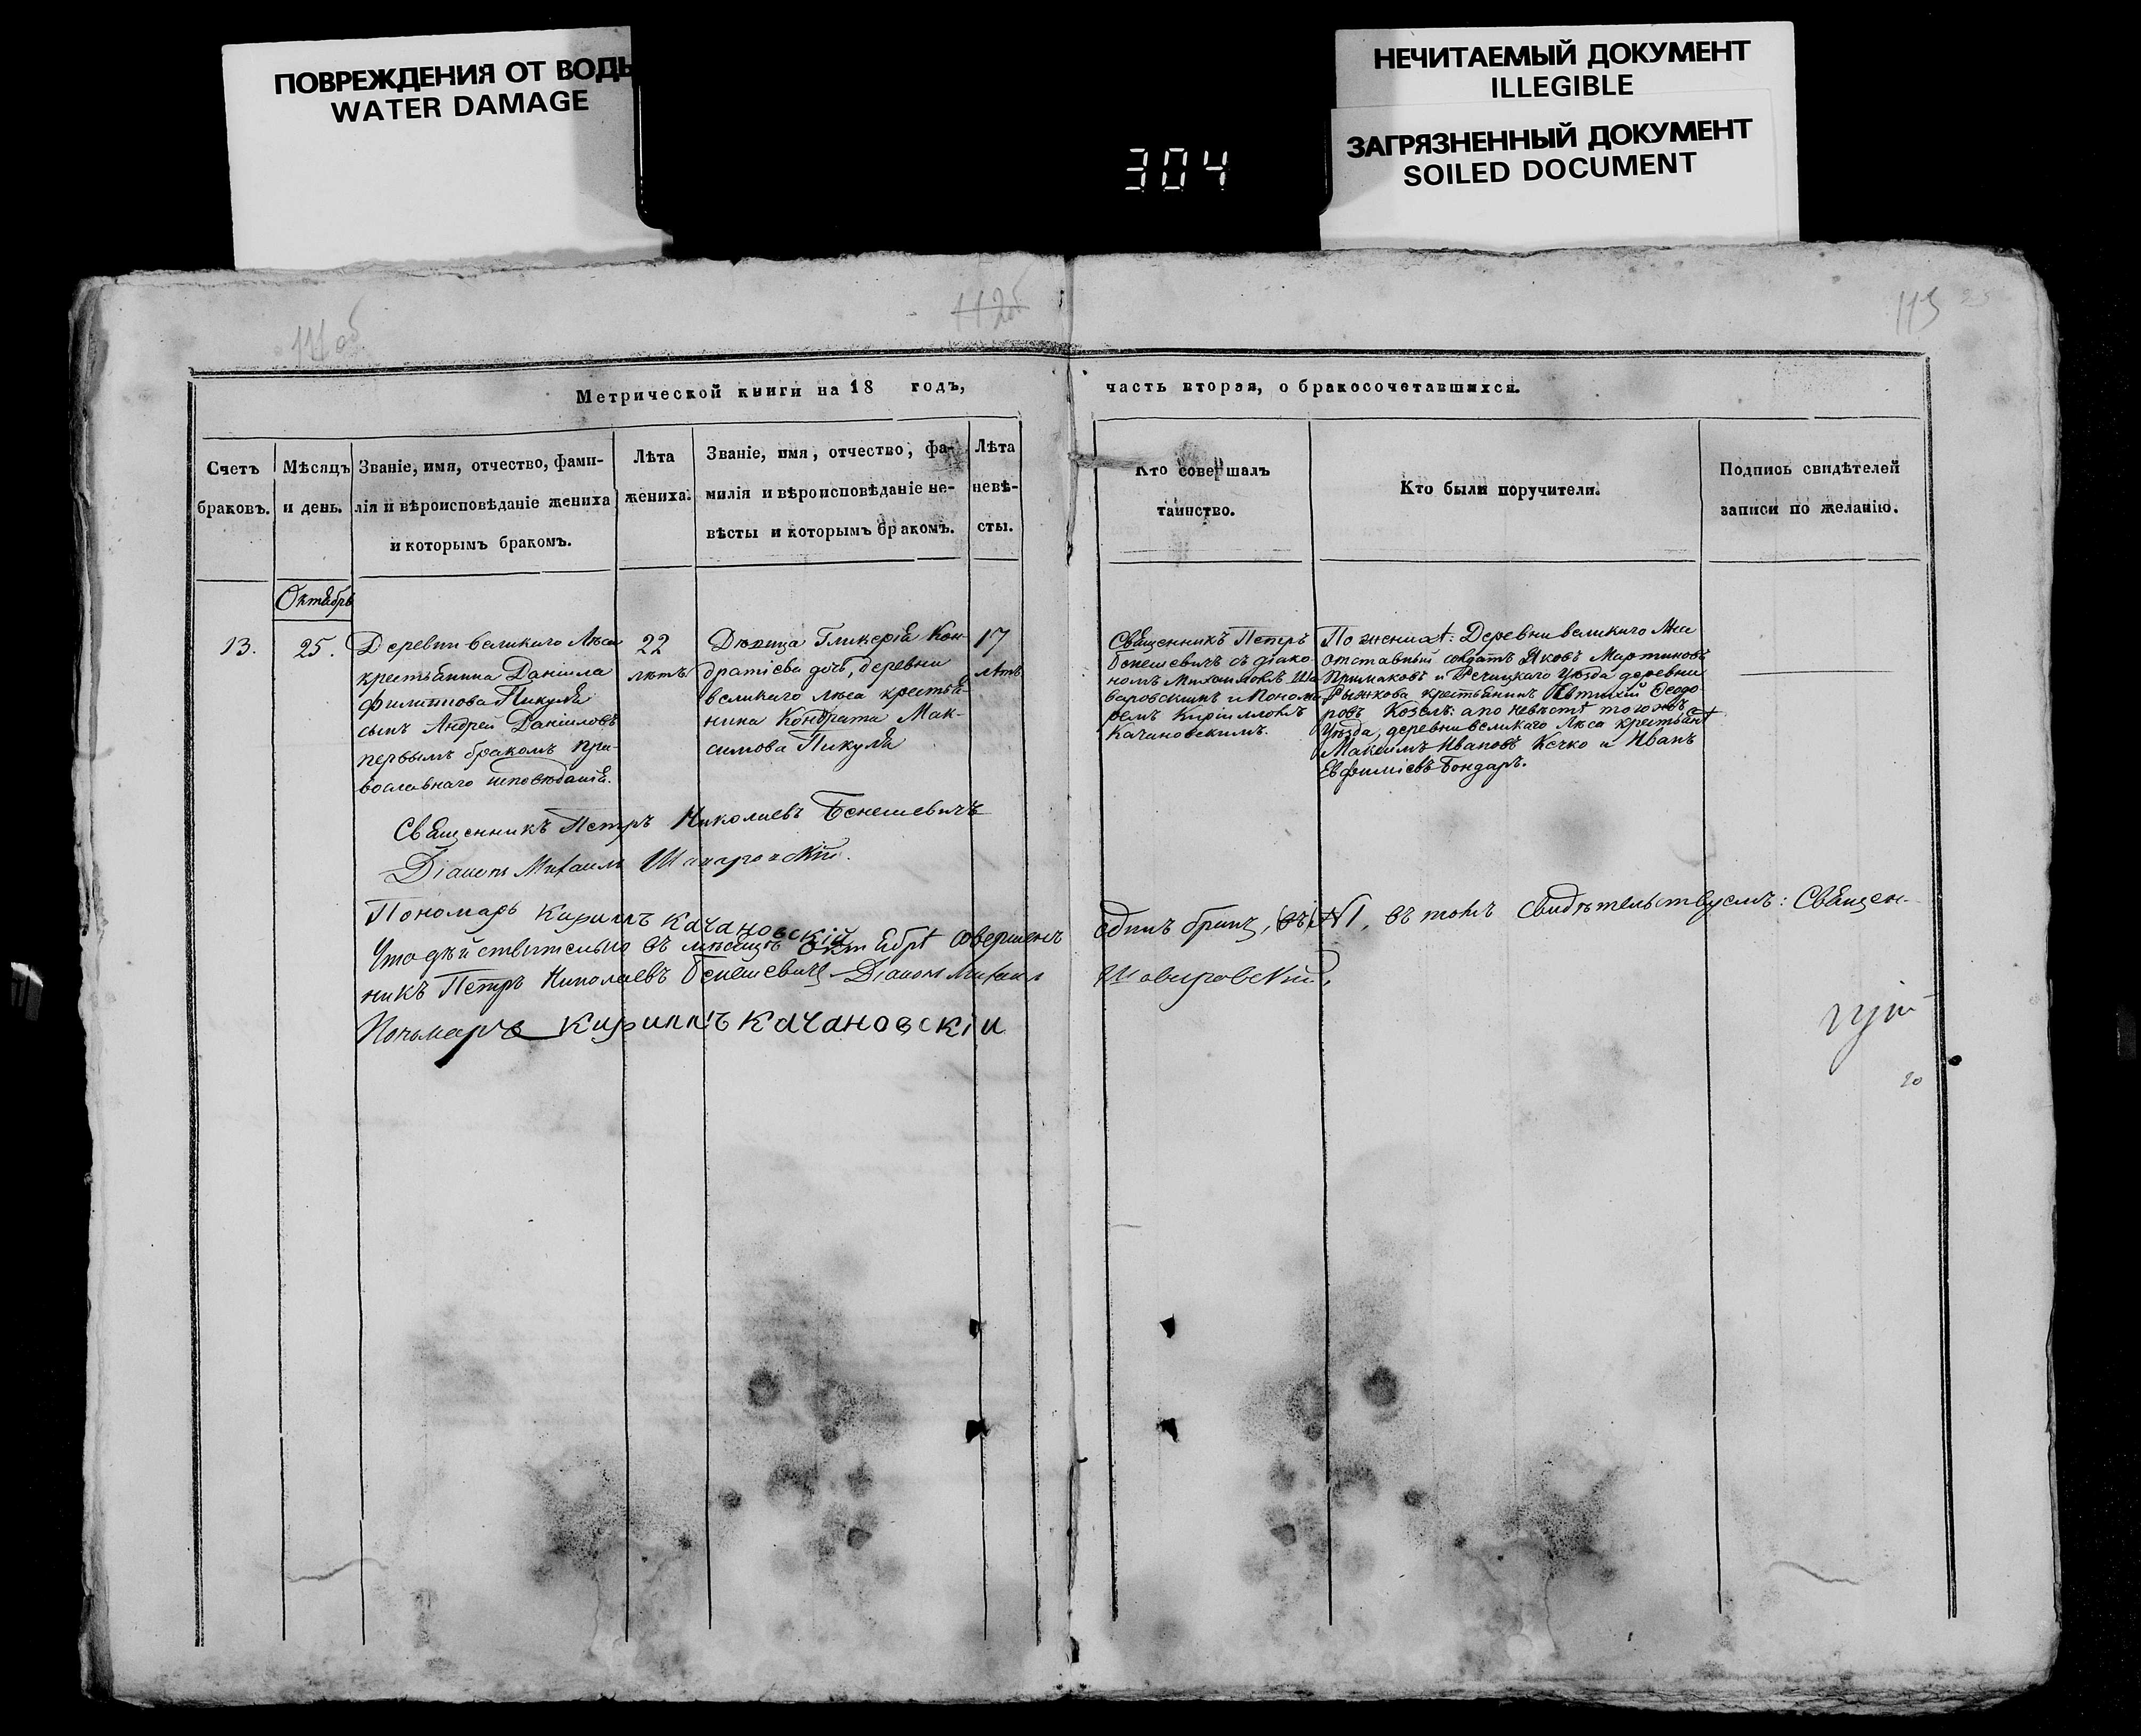 ПОВРЕЖДЕНИЯ ОТ ВОДЫ
WATER DAMAGE
304
НЕЧИТАЕМЫЙ ДОКУМЕНТ
ILLEGIBLE
ЗАГРЯЗНЕННЫЙ ДОКУМЕНТ
SOILED DOCUMENT
113
Метрической книги на 18 годъ,
часть вторая, о бракосочетавшихся.
Счетъ
браковъ.
Мѣсяцъ
и день.
Званіе, имя, отчество, фами-
лія и вѣроисповѣданіе жениха
и которымъ бракомъ.
Лѣта
жениха.
Званіе, имя, отчество, фа-
милія и вѣроисповѣданіе не-
вѣсты и которымъ бракомъ.
Лѣта
невѣ-
сты.
Кто совершалъ
таинство.
Кто были поручители.
Подпись свидѣтелей
записи по желанію.
Октября
13.
25.
Деревни великаго Лѣса
крестьянина Даніила
Филиппова Пикуля
сынъ Андрей Даніиловъ
первымъ бракомъ пра-
вославнаго исповѣданія.
22
лѣтъ
Дѣвица Гликерія Кон-
дратіева дочь, деревни
великаго лѣса крестья-
нина Кондрата Мак-
симова Пикуля
17
лѣтъ
Священникъ Петръ
Бенешевичъ съ діако-
номъ Михаиломъ Ша-
варовскимъ и Понома-
ремъ Кирилломъ
Качановскимъ.
По женихѣ: Деревни великаго Лѣса
отставный солдатъ Яковъ Мартиновъ
Примаковъ и Речицкаго Уѣзда деревни
Рыжкова крестьянинъ Евтихій Ѳеодо
ровъ Козелъ: а по невѣстѣ того жъ
Уѣзда, деревни великаго Лѣса крестьянѣ
Максимъ Ивановъ Кечко и Иванъ
Евфиміевъ Бондарь.
Священникъ Петръ Николаевъ Бенешевичъ
Діаконъ Михаилъ Шаваровскій.
Пономарь Кириллъ Качановскій
Что дѣйствительно въ мѣсяцѣ Октябрѣ совершенъ
одинъ бракъ, въ № 1, въ томъ свидѣтельствуемъ: Священ-
никъ Петръ Николаевъ Бенешевичъ Діаконъ Михаилъ
Шаваровскій,
Пономарь Кириллъ Качановскіи